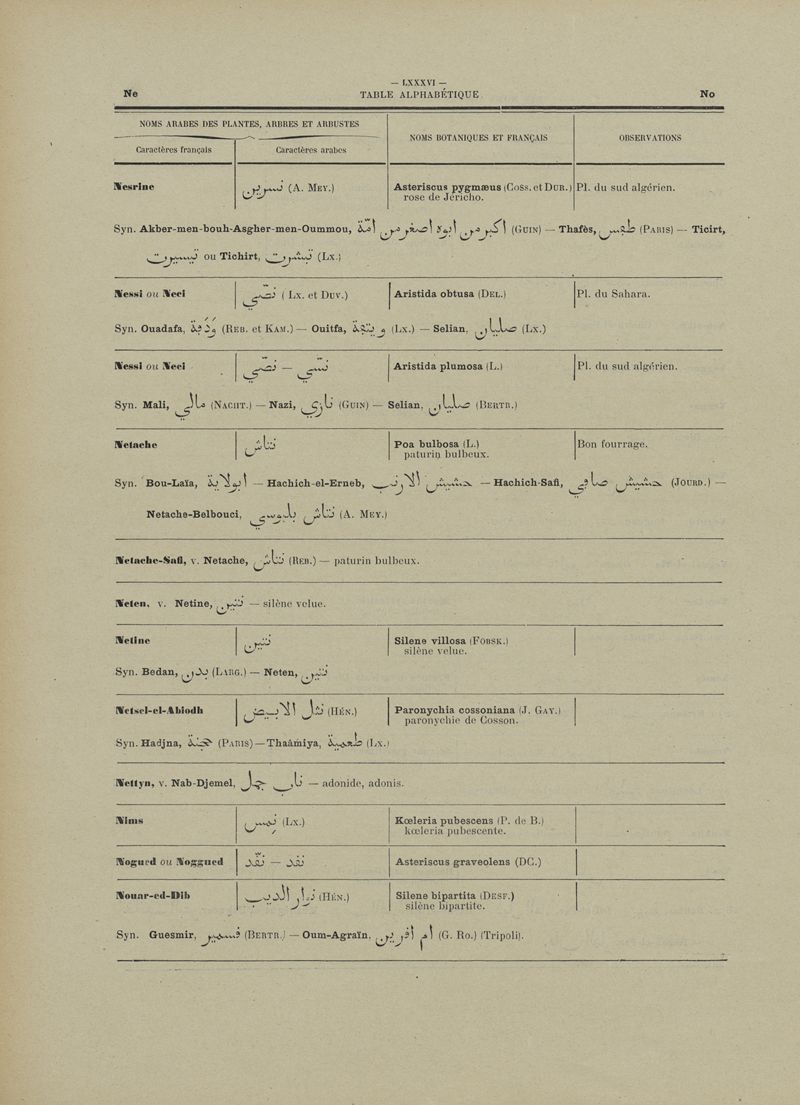 — LXXXVI —
Ne TABLE ALPHABÉTIQUE No
NOMS ARABES DES PLANTES, ARBRES ET ARBUSTES
NOMS BOTANIQUES ET FRANÇAIS
OBSERVATIONS
Caractères français
Caractères arabes
Nesrine نسرين (A. MEY.) Asteriscus pygmæus (COSS. et DUR.) Pl. du sud algérien.
rose de Jéricho.
Syn. Akber-men-bouh-Asgher-men-Oummou, (GUIN) — Thafès, (PARIS) — Ticirt,
ou Tichirt, (LX.)
Nessi ou Neci نصي (LX. et DUV.) Aristida obtusa (DEL.) Pl. du Sahara.
Syn. Ouadafa, (REB. et KAM.) — Ouitfa, (LX.) — Selian, صليان (LX.)
Nessi ou Neci نسي — نصي Aristida plumosa (L.) Pl. du sud algérien.
Syn. Mali, مالي (NACHT.) — Nazi, نازي (GUIN) — Selian, صليان (BERTR.)
Netache نتاش Poa bulbosa (L.) Bon fourrage.
paturin bulbeux.
Syn. Bou-Laïa, — Hachich-el-Erneb, حشيش الارنب — Hachich-Safi, حشيش صافي (JOURD.) —
Netache-Belbouci, نتاش بلبوسي (A. MEY.)
Netache-Safi, v. Netache, نتاش (REB.) — paturin bulbeux.
Neten, v. Netine, نتين — silène velue.
Netine نتين Silene villosa (FORSK.)
silène velue.
Syn. Bedan, بدن (LARG.) — Neten, نتن
Netsel-el-Abiodh نتل الابيض (HÉN.) Paronychia cossoniana (J. GAY.)
paronychie de Cosson.
Syn. Hadjna, (PARIS) — Thaâmiya, (LX.)
Nettyn, v. Nab-Djemel, ناب جمل — adonide, adonis.
Nims نمس (LX.) Kœleria pubescens (P. de B.)
kœleria pubescente.
Nogued ou Noggued نقد — نقد Asteriscus graveolens (DC.)
Nouar-ed-Dib نوار الذيب (HÉN.) Silene bipartita (DESF.)
silène bipartite.
Syn. Guesmir, (BERTR.) — Oum-Agraïn, (G. RO.) (Tripoli).